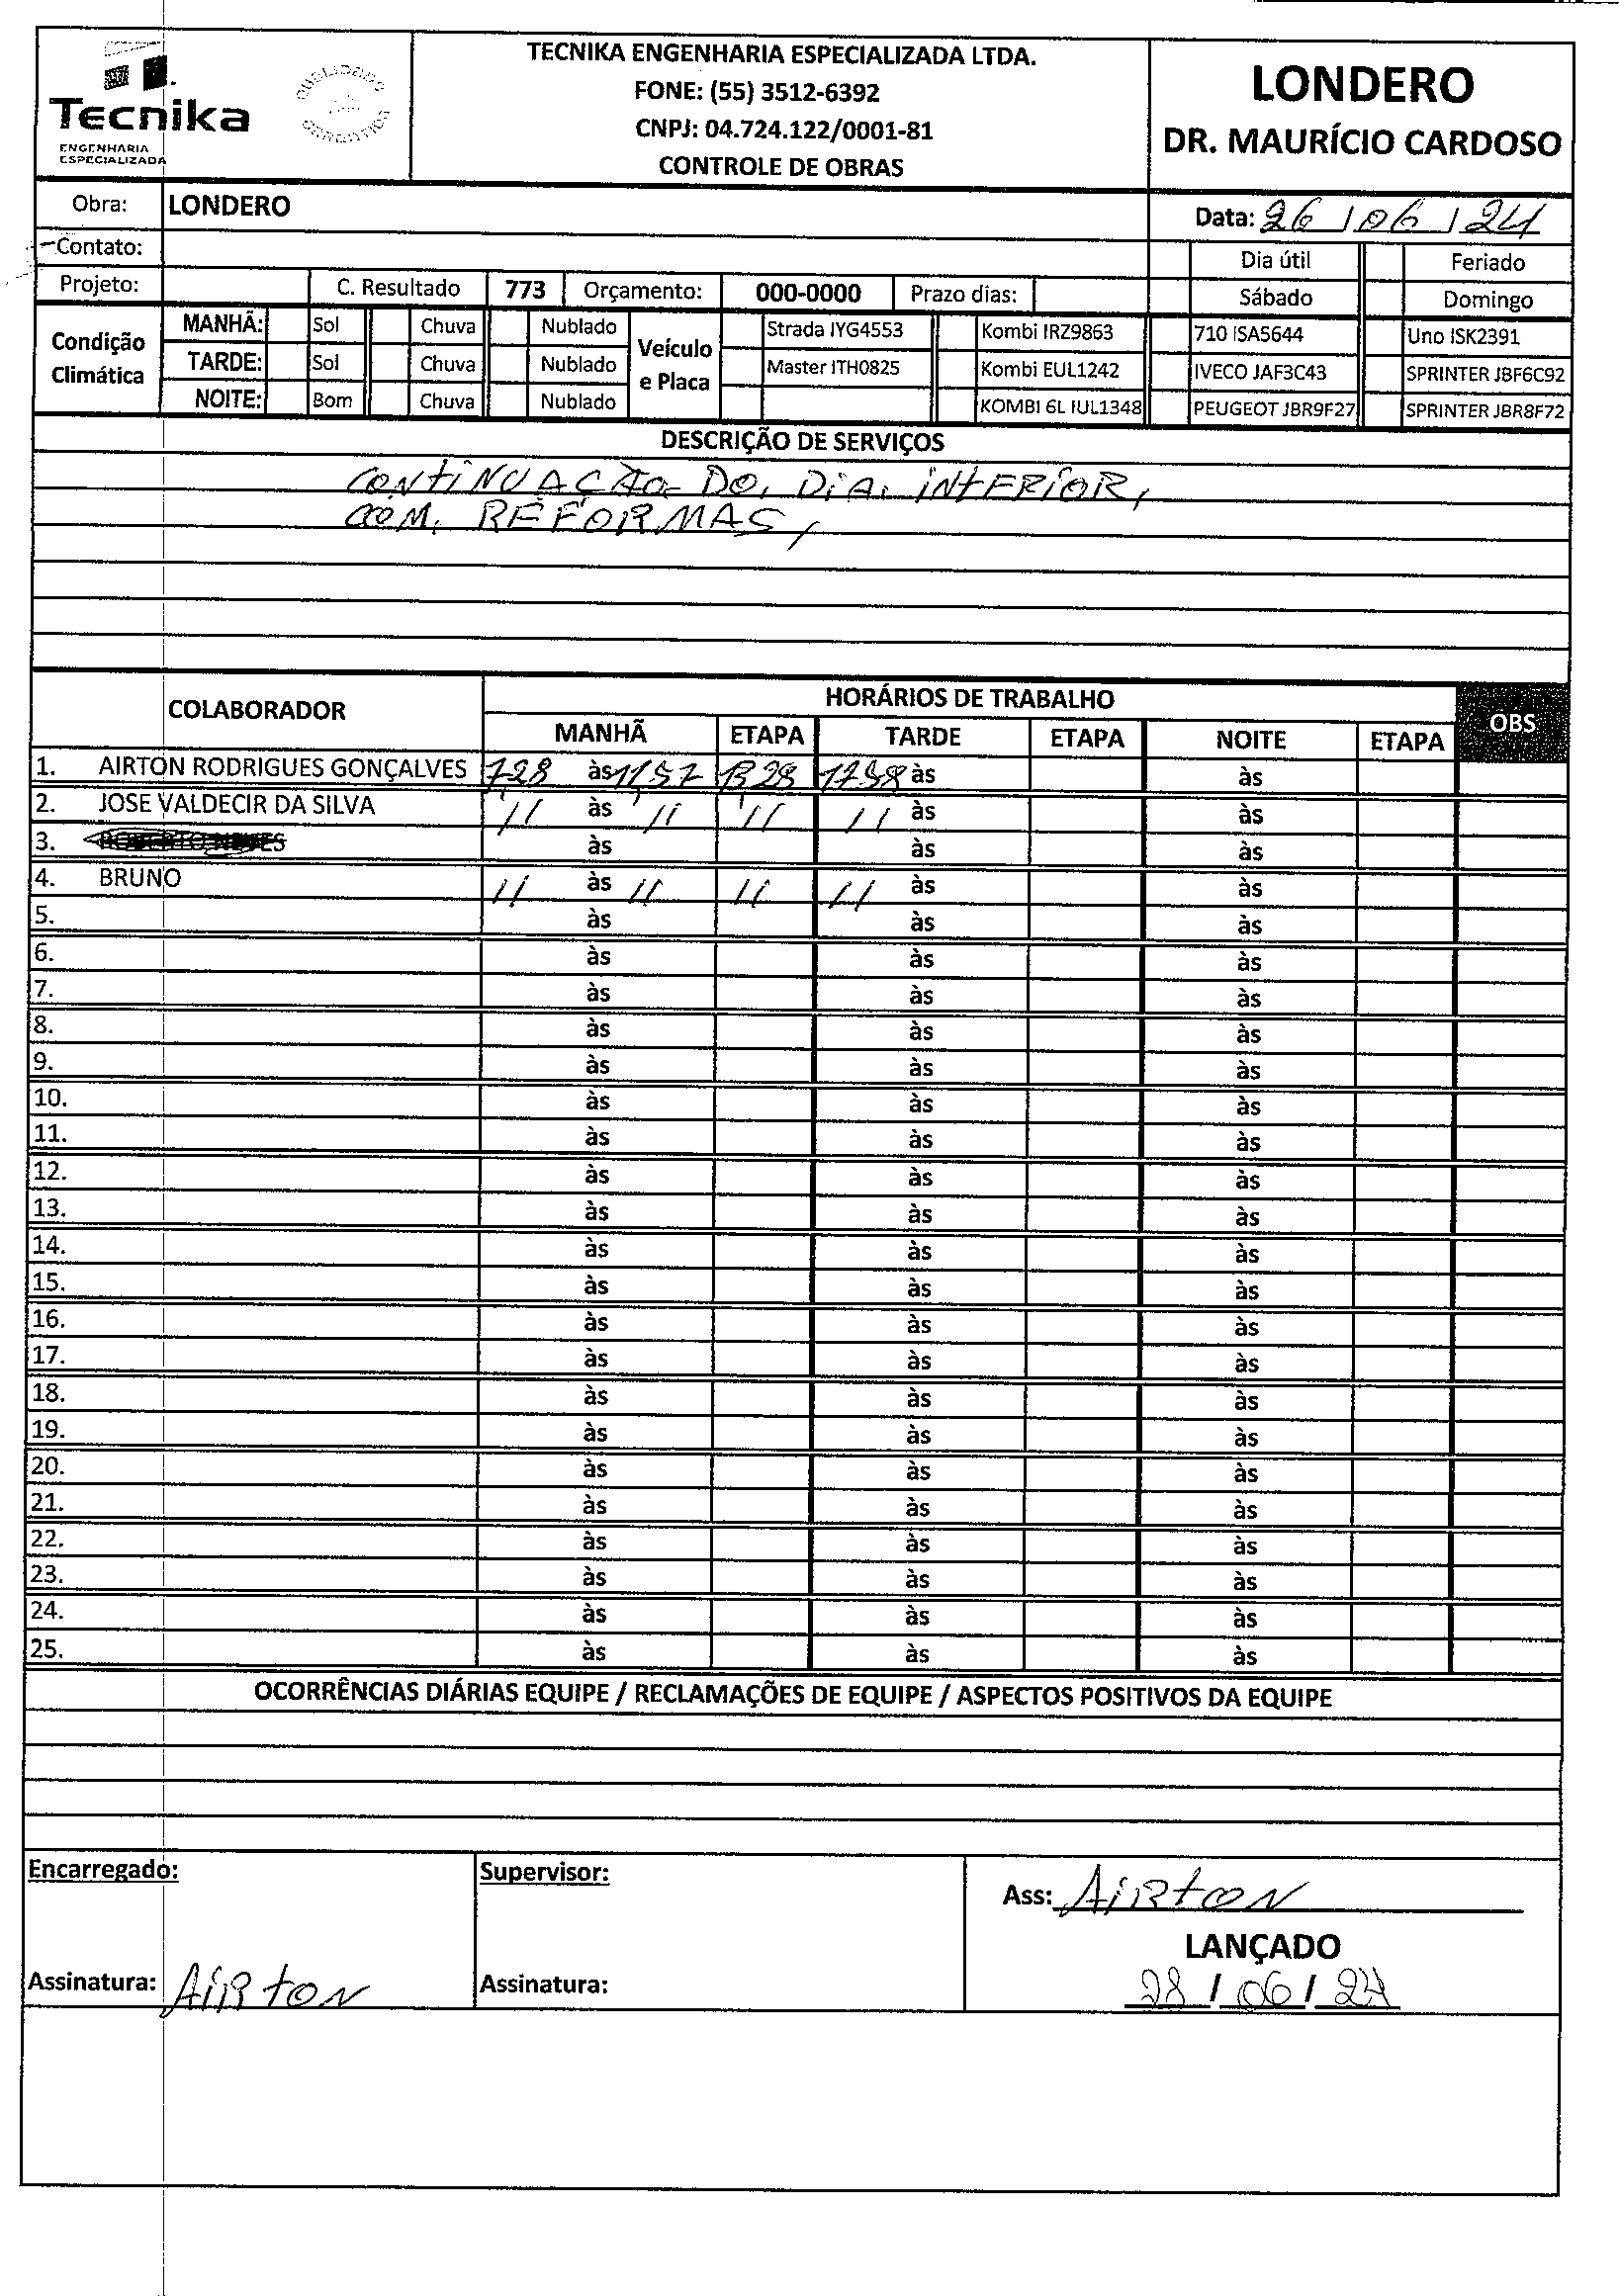 Tecnika
ENGENHARIA
ESPECIALIZADA
TECNIKA ENGENHARIA ESPECIALIZADA LTDA.
FONE: (55) 3512-6392
CNPJ: 04.724.122/0001-81
CONTROLE DE OBRAS
LONDERO
DR. MAURÍCIO CARDOSO
Obra: LONDERO
Data: 26/06/24
Contato:
Dia útil Feriado
Projeto: C. Resultado 773 Orçamento: 000-0000 Prazo dias: Sábado Domingo
Condição Climática
MANHÃ: Sol Chuva Nublado
TARDE: Sol Chuva Nublado
NOITE: Bom Chuva Nublado
Veículo e Placa
Strada IYG4553 Kombi IRZ9863 710 ISA5644 Uno ISK2391
Master ITH0825 Kombi EUL1242 IVECO JAF3C43 SPRINTER JBF6C92
KOMBI 6L IUL1348 PEUGEOT JBR9F27 SPRINTER JBR8F72
DESCRIÇÃO DE SERVIÇOS
CONTINUAÇÃO DO, DIA. INTERIOR,
COM. REFORMAS,
COLABORADOR HORÁRIOS DE TRABALHO OBS
MANHÃ ETAPA TARDE ETAPA NOITE ETAPA
1. AIRTON RODRIGUES GONÇALVES 728 às 1157 1328 1758 às às
2. JOSE VALDECIR DA SILVA 11 às 11 11 11 às às
3. ROBERTO NEVES às às às
4. BRUNO 11 às 11 11 11 às às
5. às às às
6. às às às
7. às às às
8. às às às
9. às às às
10. às às às
11. às às às
12. às às às
13. às às às
14. às às às
15. às às às
16. às às às
17. às às às
18. às às às
19. às às às
20. às às às
21. às às às
22. às às às
23. às às às
24. às às às
25. às às às
OCORRÊNCIAS DIÁRIAS EQUIPE / RECLAMAÇÕES DE EQUIPE / ASPECTOS POSITIVOS DA EQUIPE
Encarregado: Supervisor:
Ass: AIRTON
LANÇADO
Assinatura: AIRTON Assinatura:
28/06/24